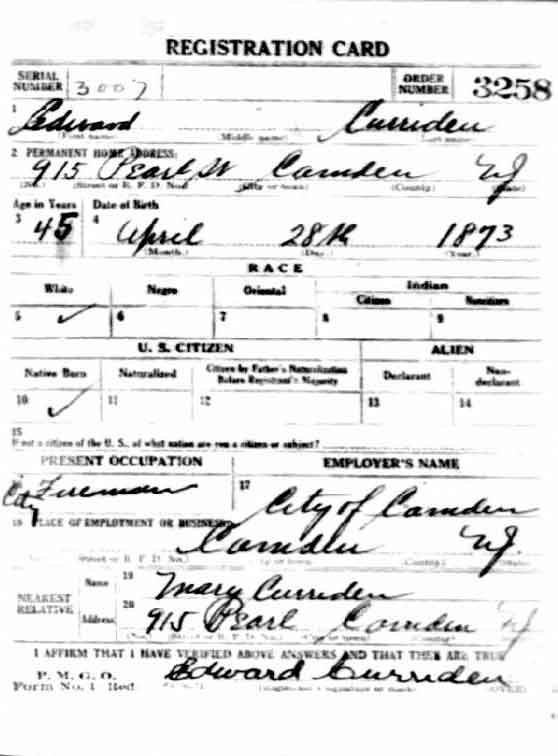 REGISTRATION CARD
SERIAL NUMBER 3007 ORDER NUMBER 3258
1 Edward Curriden
(First name) (Middle name) (Last name)
2 PERMANENT HOME ADDRESS:
915 Pearl St Camden NJ
(No.) (Street or R. F. D. No.) (City or town) (County) (State)
Age in Years Date of Birth
3 45 4 April 28th 1873
(Month.) (Day.) (Year.)
RACE
White Negro Oriental Indian
Citizen Noncitizen
5 ✓ 6 7 8 9
U. S. CITIZEN ALIEN
Native Born Naturalized Citizen by Father's Naturalization Before Registrant's Majority Declarant Non-declarant
10 ✓ 11 12 13 14
15
If not a citizen of the U. S., of what nation are you a citizen or subject?
PRESENT OCCUPATION EMPLOYER'S NAME
City Fireman 17 City of Camden
18 PLACE OF EMPLOYMENT OR BUSINESS:
Camden NJ.
(Street or R. F. D. No.) (City or town) (County) (State)
NEAREST RELATIVE Name 19 Mary Curriden
Address 20 915 Pearl Camden NJ
I AFFIRM THAT I HAVE VERIFIED ABOVE ANSWERS AND THAT THEY ARE TRUE
P. M. G. O.
Form No. 1 Red Edward Curriden
(Registrant's signature or mark) (OVER)